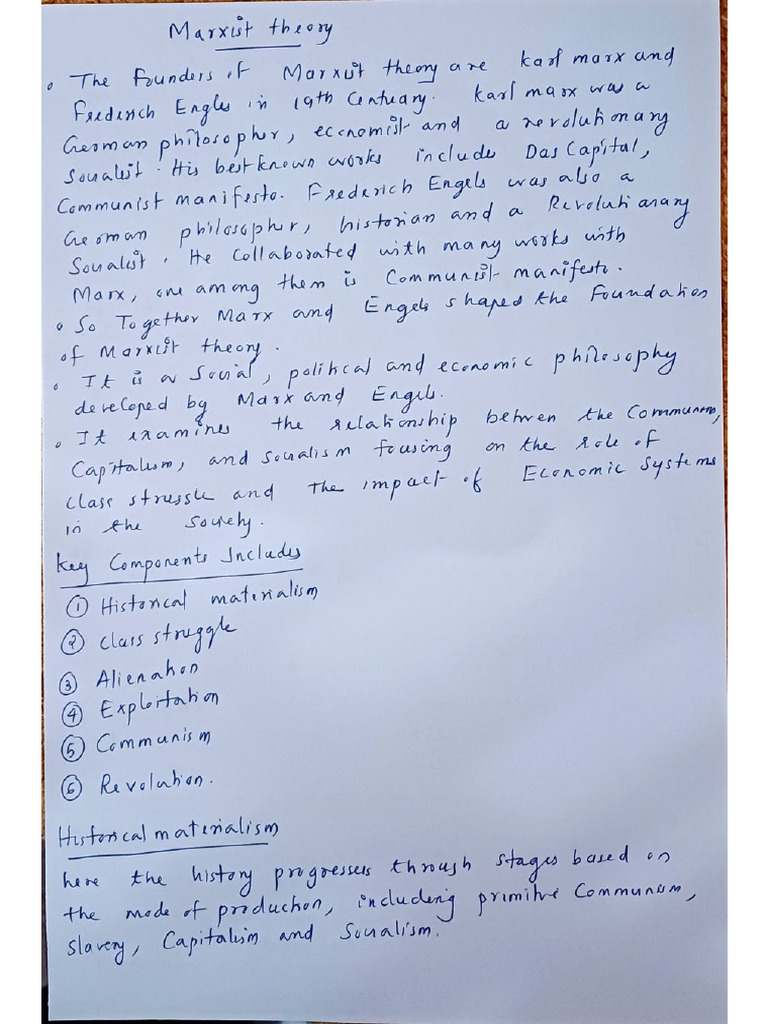 Marxist theory
• The Founders of Marxist theory are Karl marx and
Frederich Engles in 19th Centuary. Karl marx was a
German philosopher, economist and a revolutionary
Socialist. His best known works include Das Capital,
Communist manifesto. Frederich Engels was also a
German philosopher, historian and a Revolutianary
Socialist. He Collaborated with many works with
Marx, one among them is Communist manifesto.
• So Together Marx and Engels shaped the Foundation
of Marxist theory.
• It is a Social, political and economic philosophy
developed by Marx and Engels.
• It examines the relationship betwen the Communism,
Capitalism, and socialism focusing on the role of
Class struggle and The impact of Economic Systems
in the Society.
Key Components Includes
① Historical materialism
② Class struggle
③ Alienation
④ Exploitation
⑤ Communism
⑥ Revolution.
Historical materialism
here the history progressess through stages based on
the mode of production, including primitive Communism,
slavery, Capitalism and Socialism.